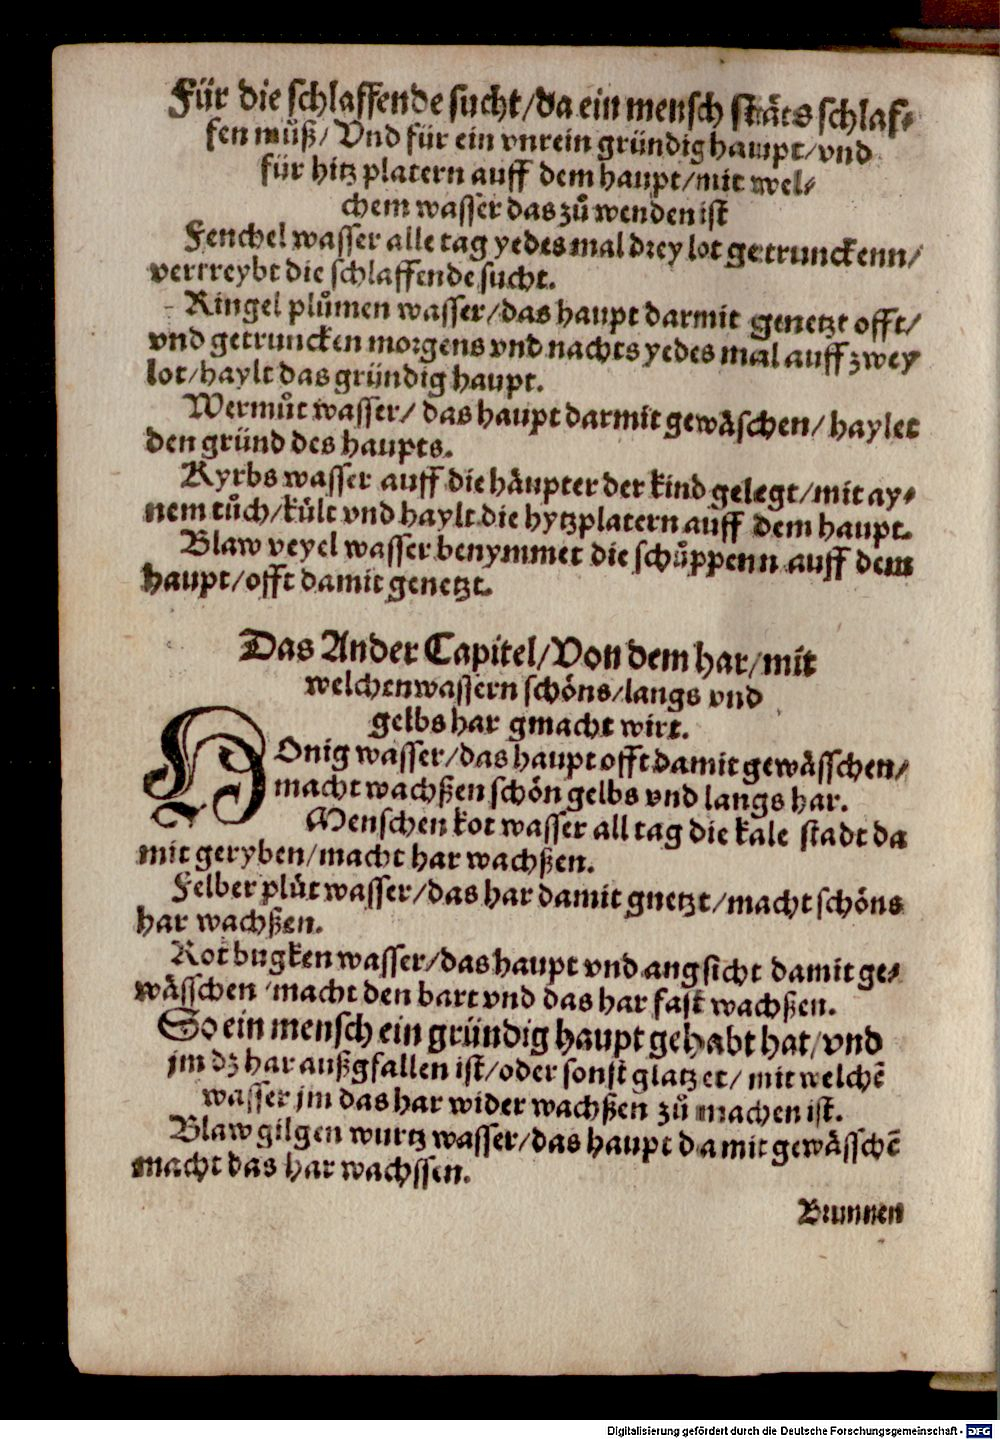 Für die schlaffende sucht/da ein mensch stäts schlaf⸗
fen muͦß/ Vnd für ein vnrein gründig haupt/vnd
für hitz platern auff dem haupt/mit wel⸗
chem wasser das zuͦ wenden ist
Fenchel wasser alle tag yedes mal drey lot getrunckenn/
vertreybt die schlaffende sucht.
Ringel pluͦmen wasser/das haupt darmit genetzt offt/
vnd getruncken morgens vnd nachts yedes mal auff zwey
lot/haylt das gründig haupt.
Wermuͦt wasser/ das haupt darmit gewäschen/ haylet
den gründ des haupts.
Kyrbs wasser auff die häupter der kind gelegt/mit ay⸗
nem tuͦch/kült vnd haylt die hytzplatern auff dem haupt.
Blaw veyel wasser benymmet die schuͦppenn auff dem
haupt/offt damit genetzt.
Das Ander Capitel/Von dem har/mit
welchen wassern schöns/langs vnd
gelbs har gmacht wirt.
HOnig wasser/das haupt offt damit gewässchen/
macht wachßen schön gelbs vnd langs har.
Menschen kot wasser all tag die kale stadt da
mit geryben/macht har wachßen.
Felber plüt wasser/das har damit gnetzt/macht schöns
har wachßen.
Rot bugken wasser/das haupt vnd angsicht damit ge⸗
wässchen/macht den bart vnd das har fast wachßen.
So ein mensch ein gründig haupt gehabt hat/vnd
jm dz har außgfallen ist/oder sonst glatzet/ mit welchē
wasser jm das har wider wachßen zuͦ machen ist.
Blaw gilgen wurtz wasser/das haupt damit gewässchē
macht das har wachssen.
Brunnen
Digitalisierung gefördert durch die Deutsche Forschungsgemeinschaft - DFG